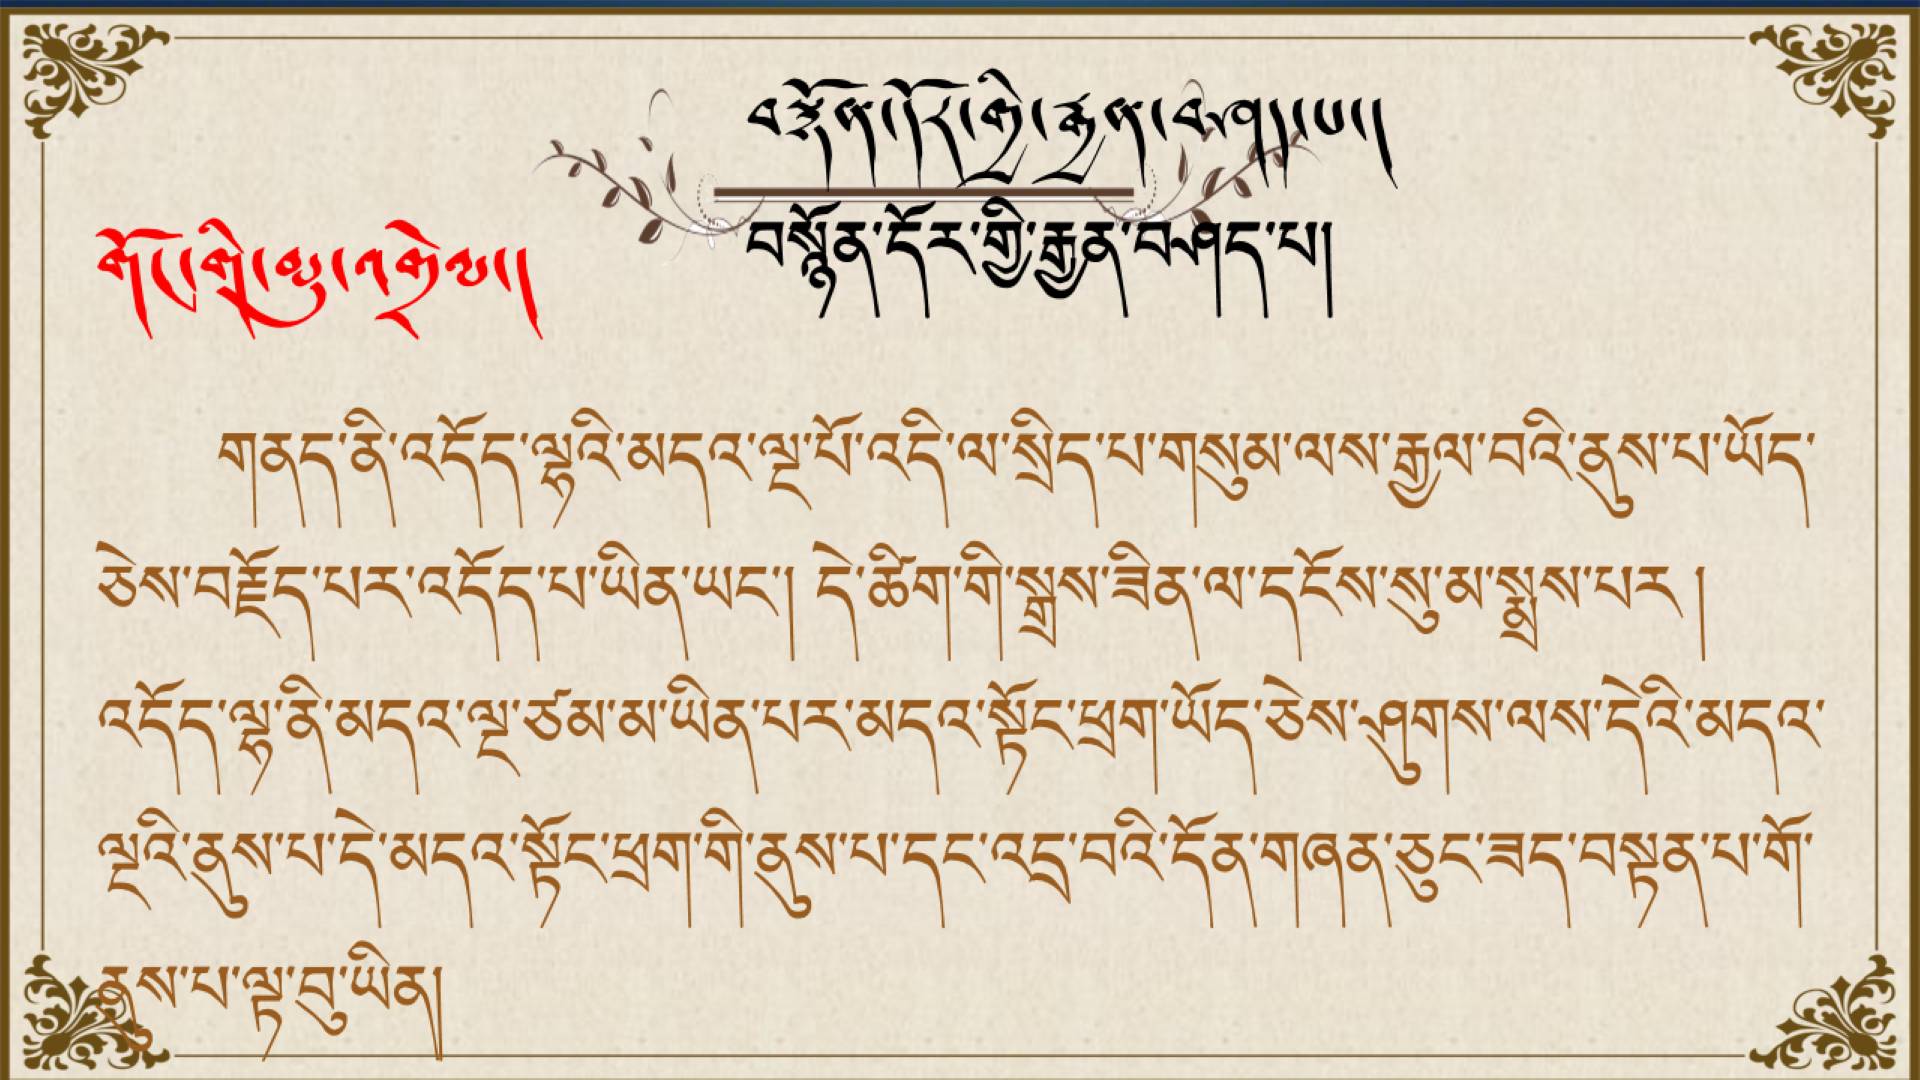 བསྙོན་དོར་གྱི་རྒྱན་བཤད་པ།
བསྙོན་དོར་གྱི་རྒྱན་བཤད་པ།
གོང་གི་ལྟ་འགྲེལ།
གནད་ནི་འདོད་ལྷའི་མདའ་ལྔ་པོ་འདི་ལ་སྲིད་པ་གསུམ་ལས་རྒྱལ་བའི་ནུས་པ་ཡོད་
ཅེས་བརྗོད་པར་འདོད་པ་ཡིན་ཡང་། དེ་ཚིག་གི་སྒྲས་ཟིན་ལ་དངོས་སུ་མ་སྨྲས་པར །
འདོད་ལྷ་ནི་མདའ་ལྔ་ཙམ་མ་ཡིན་པར་མདའ་སྟོང་ཕྲག་ཡོད་ཅེས་ཤུགས་ལས་དེའི་མདའ་
ལྔའི་ནུས་པ་དེ་མདའ་སྟོང་ཕྲག་གི་ནུས་པ་དང་འདྲ་བའི་དོན་གཞན་ཅུང་ཟད་བསྟན་པ་གོ་
ནུས་པ་ལྟ་བུ་ཡིན།